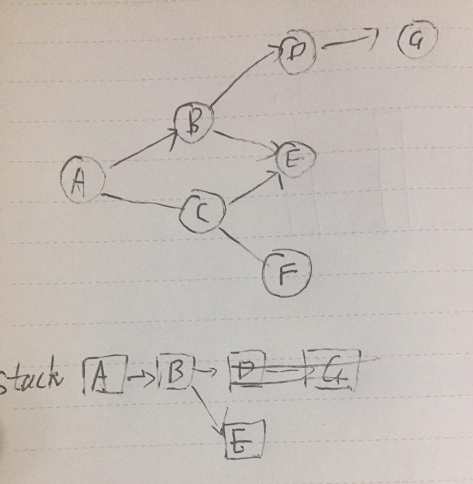 D G
B
E
A
C
F
stack A B D G
E